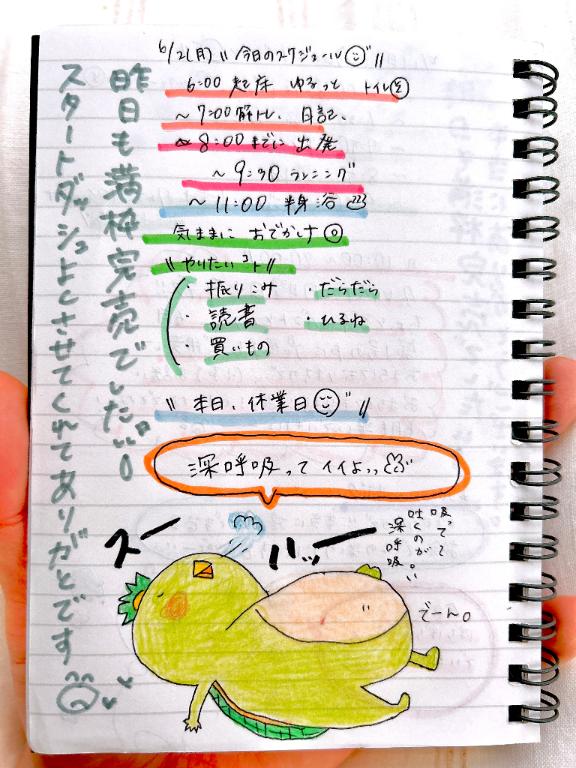 6/2(月) 〝今日のスケジュール〟
6:00 起床 ゆるっと トイレ
～7:00 筋トレ、日記、
～8:00までに 出発
～9:30 ランニング
～11:00 半身浴
気ままに おでかけ
〝やりたいコト〟
・振りこみ ・だらだら
・読書 ・ひるね
・買いもの
〝本日、休業日〟
昨日も満枠完売でした。
スタートダッシュよくさせてくれてありがとです
深呼吸ってイイよっ
吸って
吐くのが。い
深呼吸。
スー
ハッー
でーん。